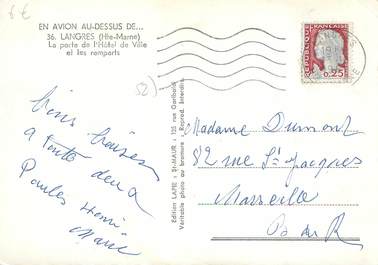 6 €
EN AVION AU-DESSUS DE...
36. LANGRES (Hte-Marne)
La porte de l'Hôtel de Ville
et les remparts
Edition LAPIE - St-MAUR - 125 rue Garibaldi
Véritable photo au bromure - Reprod. Interdite
52)
RÉPUBLIQUE FRANÇAISE
0,25
Bons baisers
a toute deux
Paulee Henri
Marie
Madame Dumont
82 rue St Jacques
Marseille
B du R